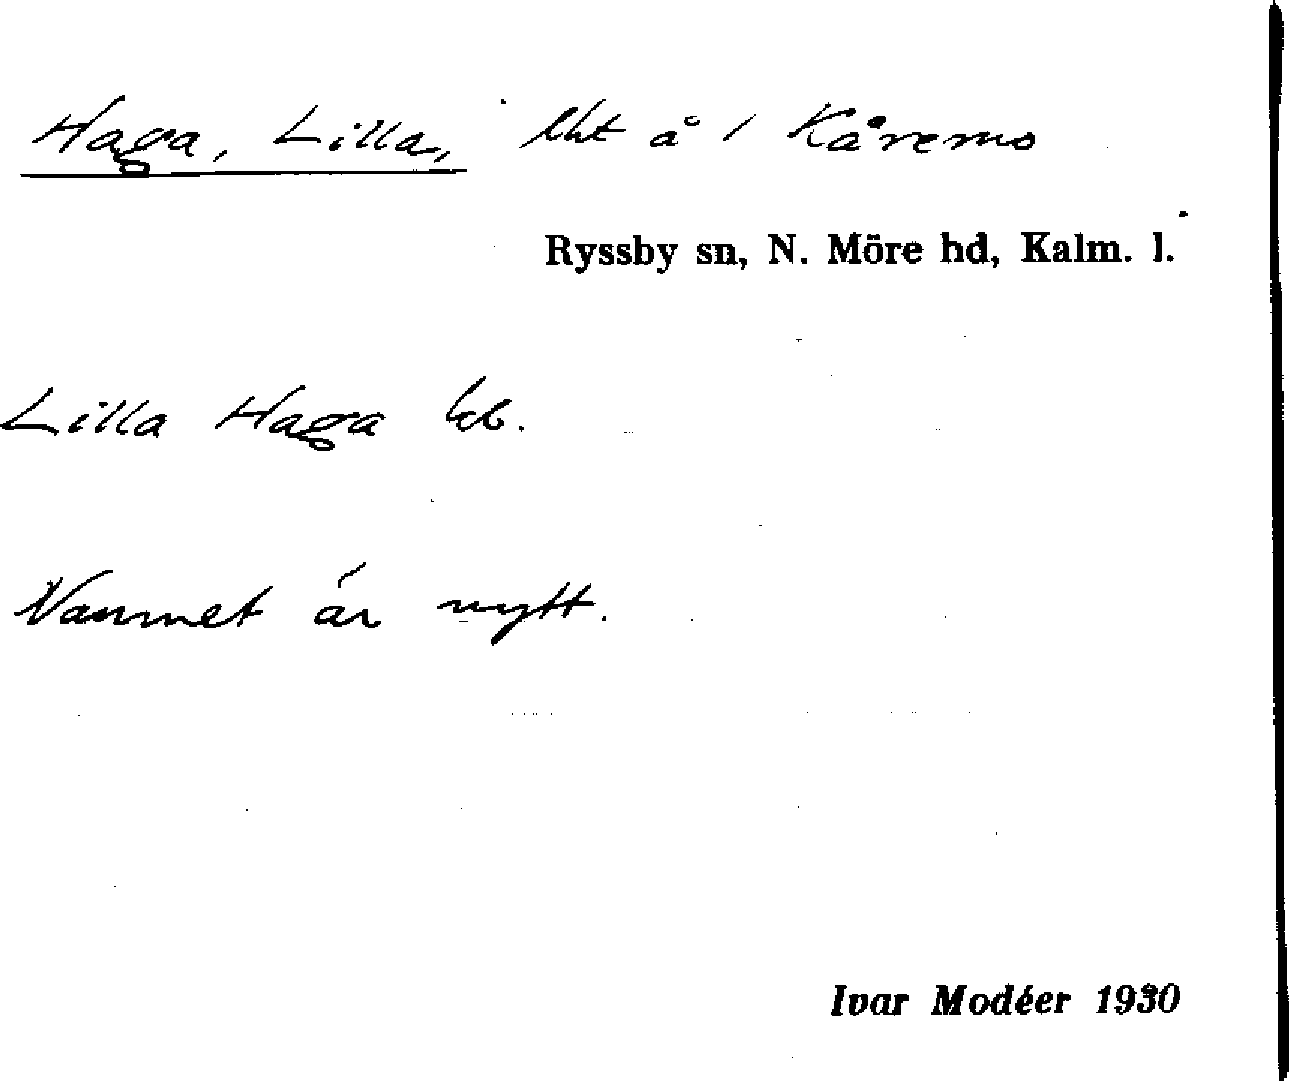 Haga, Lilla, lht å 1 Kåremo
Ryssby sn, N. Möre hd, Kalm. l.
Lilla Haga kb.
Namnet är nytt.
Ivar Modéer 1930